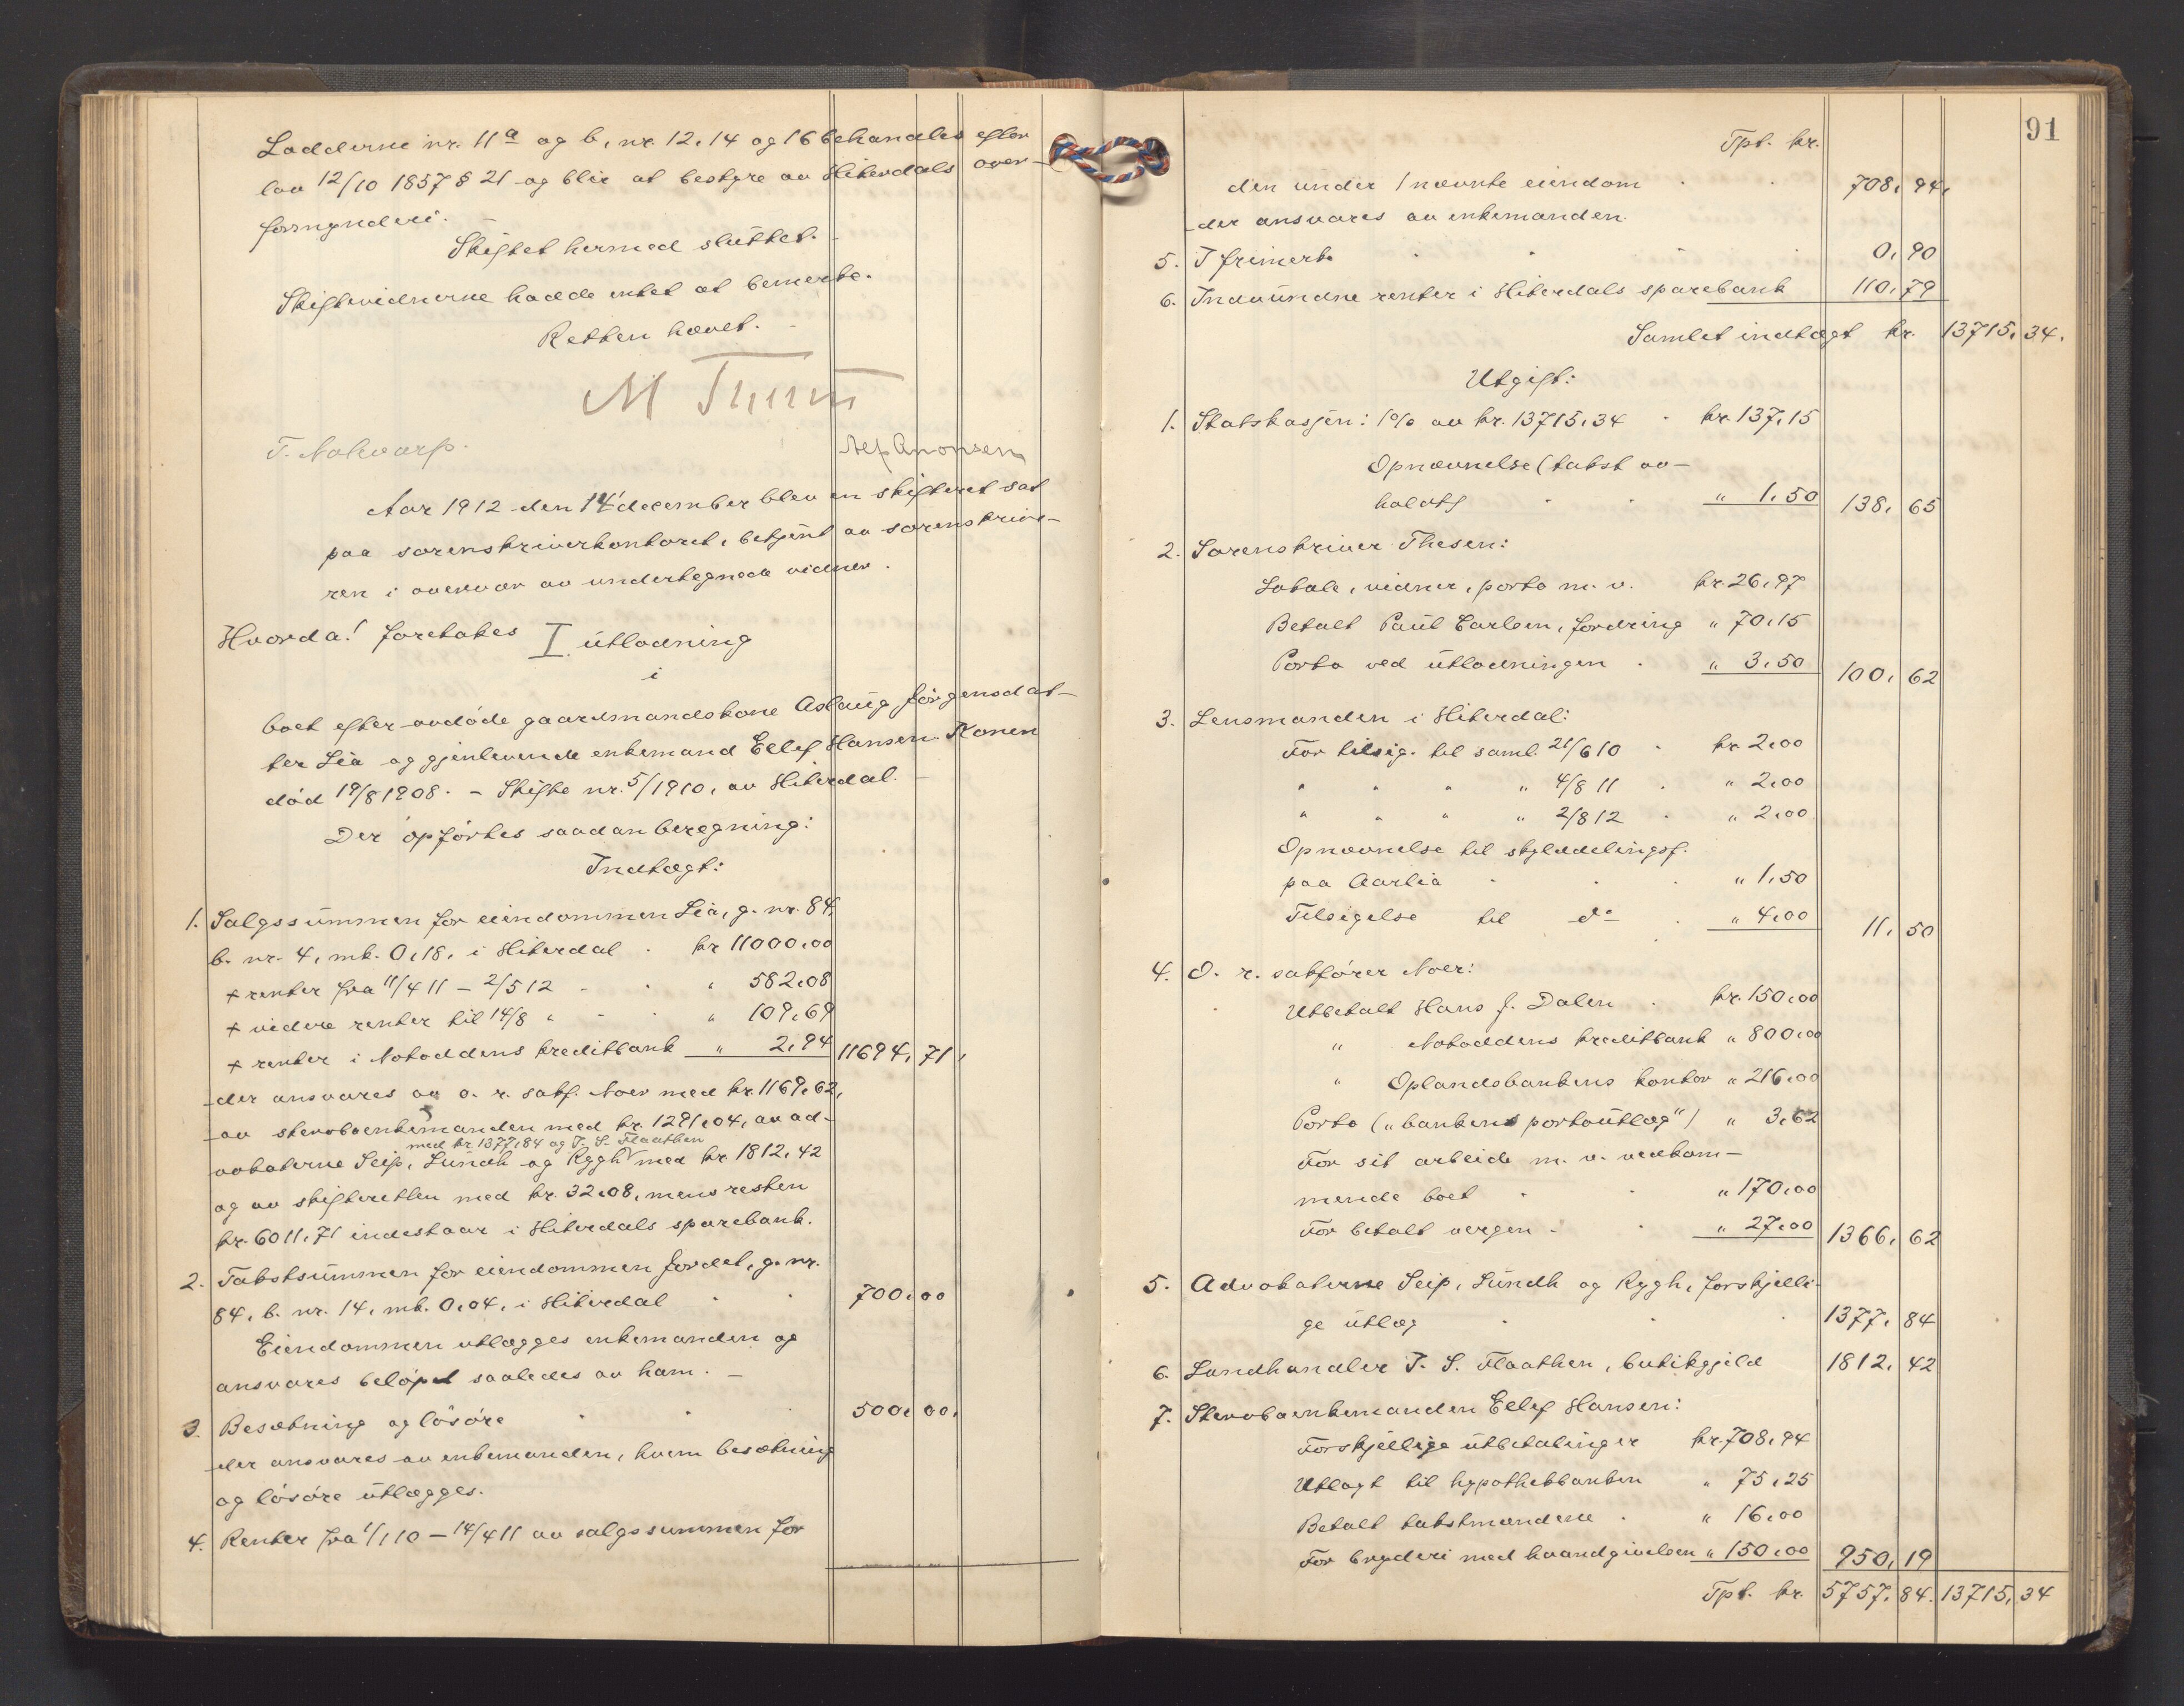 Lodderne nr. 11a og b, nr. 12, 14 og 16 behandles efter
lov 12/10 1857 § 21 og blir at bestyre av Hiterdals over-
formynderi.
Skiftet hermed sluttet.
Skiftevidnerne hadde intet at bemerke.
Retten hævet.
M
T. Nakvarp.
Alf Anonsen
Aar 1912 den 14' december blev en skifteret sat
paa sorenskriverkontoret, betjent av sorenskrive-
ren i overvær av undertegnede vidner.
Hvorda! foretokes I. utlodning
i
boet efter avdøde gaardmandskone Aslaug Jørgensdat-
ter Lia og gjenlevende enkemand Ellef Hansen. Konen
død 19/8 1908. - Skifte nr. 5/1910, av Hiterdal.
Der opførtes saadan beregning:
Indtægt:
1. Salgssummen for eiendommen Lia, g. nr. 84,
b. nr. 4, mk. 0,18, i Hiterdal . kr 11000,00
+ renter fra 11/4 11 - 2/5 12 - . " 582,08
+ videre renter til 14/8 " - . " 109,69
+ renter i Notoddens kreditbank " 2,94 11694, 71,
der ansvares av o. r. sakf. Noer med kr. 1169,62,
av stervboenkemanden med kr. 1291,04, av ad-
med kr. 1377,84 og T. S. Flaathen
vokaterne Seip, Lundh og Rygh med kr 1812,42
og av skifteretten med kr. 32,08, mens resten
kr. 6011,71 indestaar i Hiterdals sparebank.
2. Takstsummen for eiendommen Jordet, g. nr.
84, b. nr. 14, mk. 0,04, i Hiterdal . . 700,00
Eiendommen utlægges enkemanden og
ansvares beløpet saaledes av ham. -
3. Besætning og løsøre . . . 500, 00,
der ansvares av enkemanden, hvem besætning
og løsøre utlægges.
4. Renter fra 1/1 10 - 14/4 11 av salgssummen for
91
Tpt. kr.
den under 1 nævnte eiendom . . 708, 94,
der ansvares av enkemanden.
5. I frimerk. . . . 0, 90
6. Indvundne renter i Hiterdals sparebank 110, 79
Samlet indtægt kr. 13715, 34.
Utgift:
1. Statskassen: 1% av kr. 13715,34 . kr. 137,15
Opnævnelse (takst av-
holdt) . . " 1,50 138, 65
2. Sorenskriver Thesen:
Lokale, vidner, porto m. v. kr. 26,97
Betalt Paul Carlsen, fordring " 70,15
Porto ved utlodningen . " 3,50 100, 62
3. Lensmanden i Hiterdal:
For tilsig. til saml. 21/6 10 . kr 2,00
" " " " 4/8 11 . " 2,00
" " " " 2/8 12 . " 2,00
Opnævnelse til skylddelingsf.
paa Aarlia . . . " 1,50
Tilsigelse til do . " 4,00 11, 50
4. O. r. sakfører Noer:
Utbetalt Hans J. Dalen . kr. 150,00
" Notoddens kreditbank " 800,00
" Oplandsbankens kontor " 216,00
Porto („bankens portoutlæg") " 3,62
For sit arbeide m. v. vedkom-
mende boet . . " 170,00
For betalt vergen . . " 27,00 1366, 62
5. Advokaterne Seip, Lundh og Rygh, forskjelli-
ge utlæg . . . 1377, 84
6. Landhandler T. S. Flaathen, butikgjeld 1812, 42
7. Stervboenkemanden Ellef Hansen:
Forskjellige utbetalinger kr. 708,94
Utlagt til hypothekbanken " 75,25
Betalt takstmændene . " 16,00
For bryderi med haandgivelsen " 150,00 950, 19
Tpt. kr. 5757, 84. 13715, 34